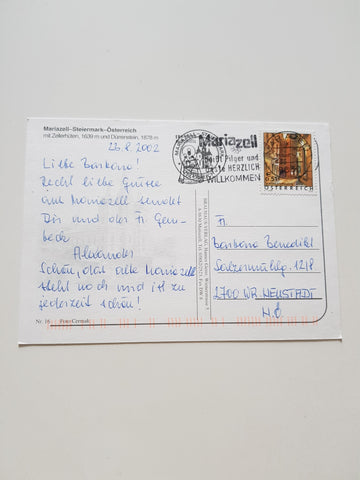 Mariazell–Steiermark–Österreich
mit Zellerhüten, 1639 m und Dürrnstein, 1878 m
26.8.2002
Liebe Barbara!
Recht liebe Grüsse
aus Mariazell sendet
Dir und der Fr. Gem-
beck
Alexander
Schön, das alte Mariazell
steht noch und ist zu
jederzeit schön!
Nr. 16
Mariazell
heißt Pilger und
Gäste HERZLICH
WILLKOMMEN
0,51
ÖSTERREICH
Fr.
Barbara Benedikt
1218
2700 WR. NEUSTADT
N.Ö.